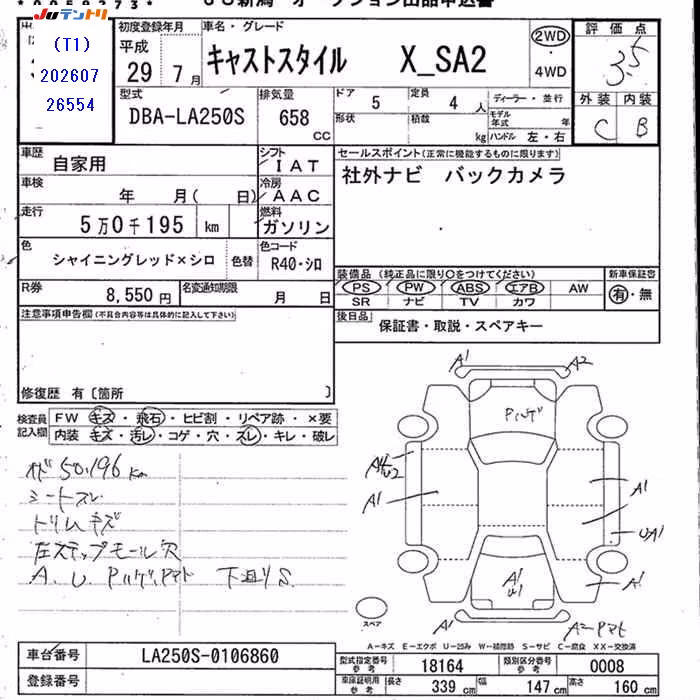 *0059273*
JUテントリ
(T1)
202607
26554
初度登録年月
平成
29年7月
車名・グレード
キャストスタイル X_SA2
2WD
・
4WD
評価点
3.5
外装 内装
C B
型式
DBA-LA250S
排気量
658
CC
ドア 5
定員 4人
形状
積載 kg
ディーラー・並行
モデル年式 年
ハンドル 左・右
車歴
自家用
シフト
IAT
車検
年 月( 日)
冷房
AAC
走行
5万0千195 km
燃料
ガソリン
セールスポイント(正常に機能するものに限ります)
社外ナビ バックカメラ
色
シャイニングレッド×シロ
色替
色コード
R40・シロ
R券
8,550円
名変通知期限
月 日
装備品(純正品に限り○をつけてください)
PS PW ABS エアB AW
SR ナビ TV カワ
新車保証書
有・無
後日品
保証書・取説・スペアキー
注意事項申告欄(不具合内容等は具体的に記入して下さい)
修復歴 有〔箇所 〕
検査員
記入欄
FW キズ・飛石・ヒビ割・リペア跡・×要
内装 キズ・汚レ・コゲ・穴・スレ・キレ・破レ
50,196 km
シートスレ
トリムキズ
左ステップモール穴
A、U、
下廻りS
A1 A2
A1
A1
UA1
A1
A1
A1
スペア
A-キズ E-エクボ U-凹み W-補修跡 S-サビ C-腐食 XX-交換済
車台番号
LA250S-0106860
登録番号
型式指定番号
参考
18164
類別区分番号
参考
0008
車庫証明用
参考
長さ 339 cm
幅 147 cm
高さ 160 cm